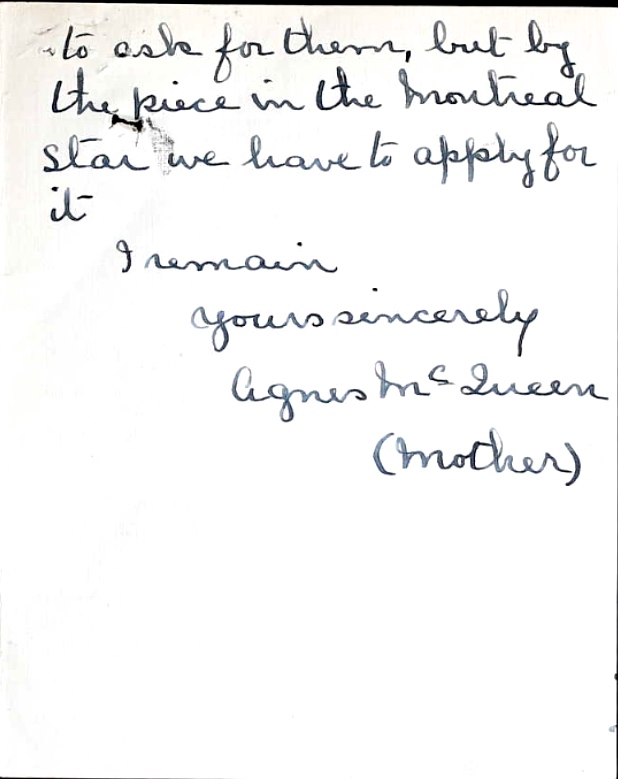 to ask for them, but by
the piece in the Montreal
star we have to apply for
it
I remain
yours sincerely
Agnes McQueen
(Mother)